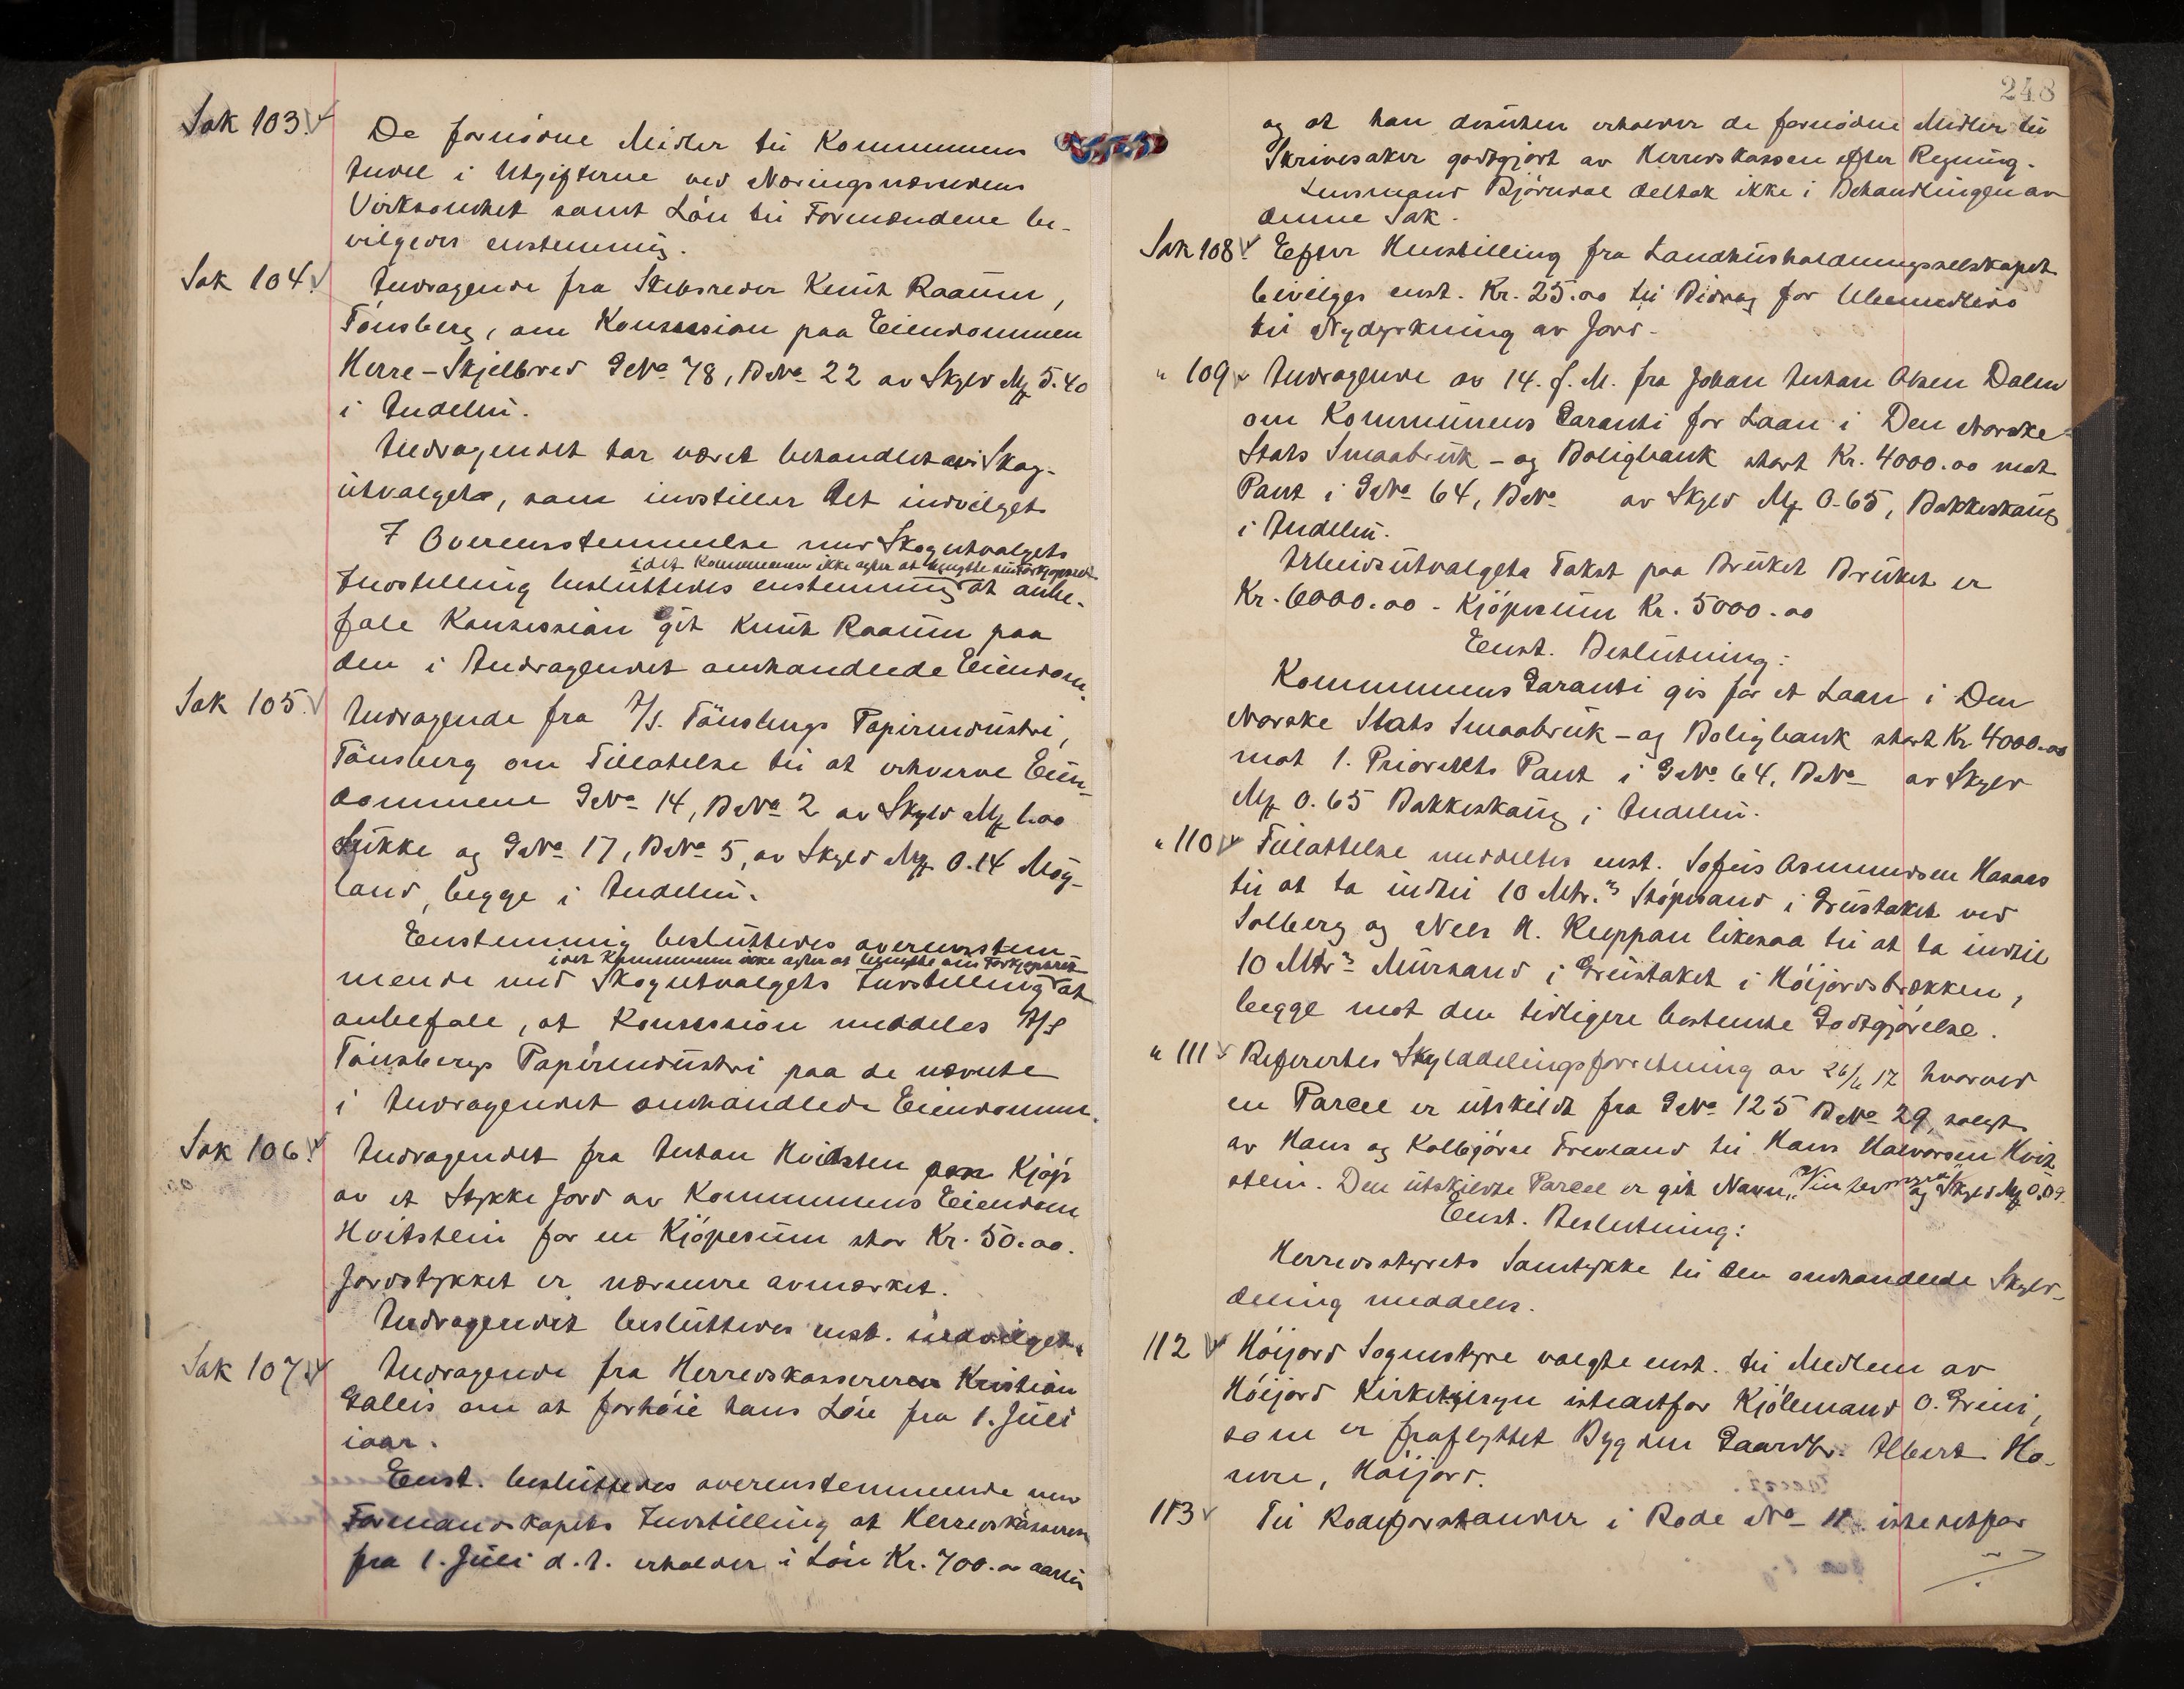 Sak 103.
De fornödne Midler til Kommunens
Andel i Utgifterne ved Næringsnævndens
Virksomhet samt Lön til Formændene be-
vilgedes enstemmig.
Sak 104.
Andragende fra Skibsreder Knut Raaum,
Tönsberg, om Konsession paa Eiendommen
Herre-Skjelbred GNo 78, BNo 22 av Skyld Mk 5.40
i Andebu.
Andragendet har været behandlet av Skog-
utvalget, som indstiller det indvilget.
I Overensstemmelse med Skogutvalgets
idet Kommunen ikke agter at benytte sin Forkjøpsret
Indstilling besluttedes enstemmig at anbe-
fale Konsession git Knut Raaum paa
den i Andragendet omhandlede Eiendom.
Sak 105.
Andragende fra A/S. Tönsbergs Papirindustri,
Tönsberg om Tillatelse til at erhverve Eien-
dommene GNo 14, BNo 2 av Skyld Mk 1.00
Sukke og GNo 17, BNo 5, av Skyld Mk 0.14 Møy-
land, begge i Andebu.
Enstemmig besluttedes overensstem-
idet Kommunen ikke agter at benytte sin Forkjøpsret
mende med Skogutvalgets Indstilling at
anbefale, at Konsession meddeles A/S
Tönsbergs Papirindustri paa de nævnte
i Andragendet omhandlede Eiendomme.
Sak 106.
Andragendet fra Anton Hvitsten paa Kjøp
av et Stykke Jord av Kommunens Eiendom
Hvitstein for en Kjöpesum stor Kr. 50.00.
Jordstykket er nærmere avmærket.
Andragendet besluttedes enst. indvilget.
Sak 107.
Andragende fra Herredskassereren Kristian
Galleis om at forhöie hans Lön fra 1. Juli
iaar.
Enst. besluttedes overenstemmende med
Formandskapets Indstilling at Herredskassereren
fra 1. Juli d. A. erholder i Lön Kr. 700.00 aarlig
248
og at han desuten erholder de fornødne Midler til
Skrivesaker godtgjort av Herredskassen efter Regning.
Lensmand Bjørndal deltok ikke i Behandlingen av
denne Sak.
Sak 108. Efter Henstilling fra Landhusholdningsselskapet
bevilges enst. Kr. 25.00 til Bidrag for Ubemidlede
til Nydyrkning av Jord.
" 109 Andragende av 14. f. M. fra Johan Anton Olsen Dalen
om Kommunens Garanti for Laan i Den Norske
Stats Smaabruk- og Boligbank stort Kr. 4000.00 mot
Pant i GNo 64, BNo av Skyld Mk 0.65, Bakkeskaug
i Andebu.
Arbeidsutvalgets Takst paa Bruket Bruket er
Kr. 6000.00 - Kjöpesum Kr. 5000.00
Enst. Beslutning:
Kommunens Garanti gis for et Laan i Den
Norske Stats Smaabruk- og Boligbank stort Kr. 4000.00
mot 1. Prioritets Pant i GNo 64, BNo av Skyld
Mk 0.65 Bakkeskaug i Andebu.
" 110 Tillatelse meddeltes enst. Sofus Asmundsen
til at ta indtil 10 Mtr.3 Stöpesand i Grustaket ved
Solberg og Nils H. Kleppan likesaa til at ta indtil
10 Mtr3 Mursand i Grustaket i Höijordsbrækken,
begge mot den tidligere bestemte Godtgjørelse.
" 111 Refererertes Skylddelingsforretning av 26/6 17 hvorved
en Parcel er utskildt fra GNo 125 BNo 29, solgt
av Hans og Kolbjörn Trevland til Hans Halvorsen Hvit-
stein. Den utskildte Parcel er git Navn og Skyld Mk 0.09.
Enst. Beslutning:
Herredsstyrets Samtykke til den omhandlede Skyld-
deling meddeles.
112 Höijord Sognestyre valgte enst. til Medlem av
Höijord Kirketilsyn istedetfor Kjölemand O. Greni,
som er fraflyttet Bygden Gaardbr. Albert Ho-
nere, Höijord.
113 Til Rodeforstander i Rode No 11 istedetfor